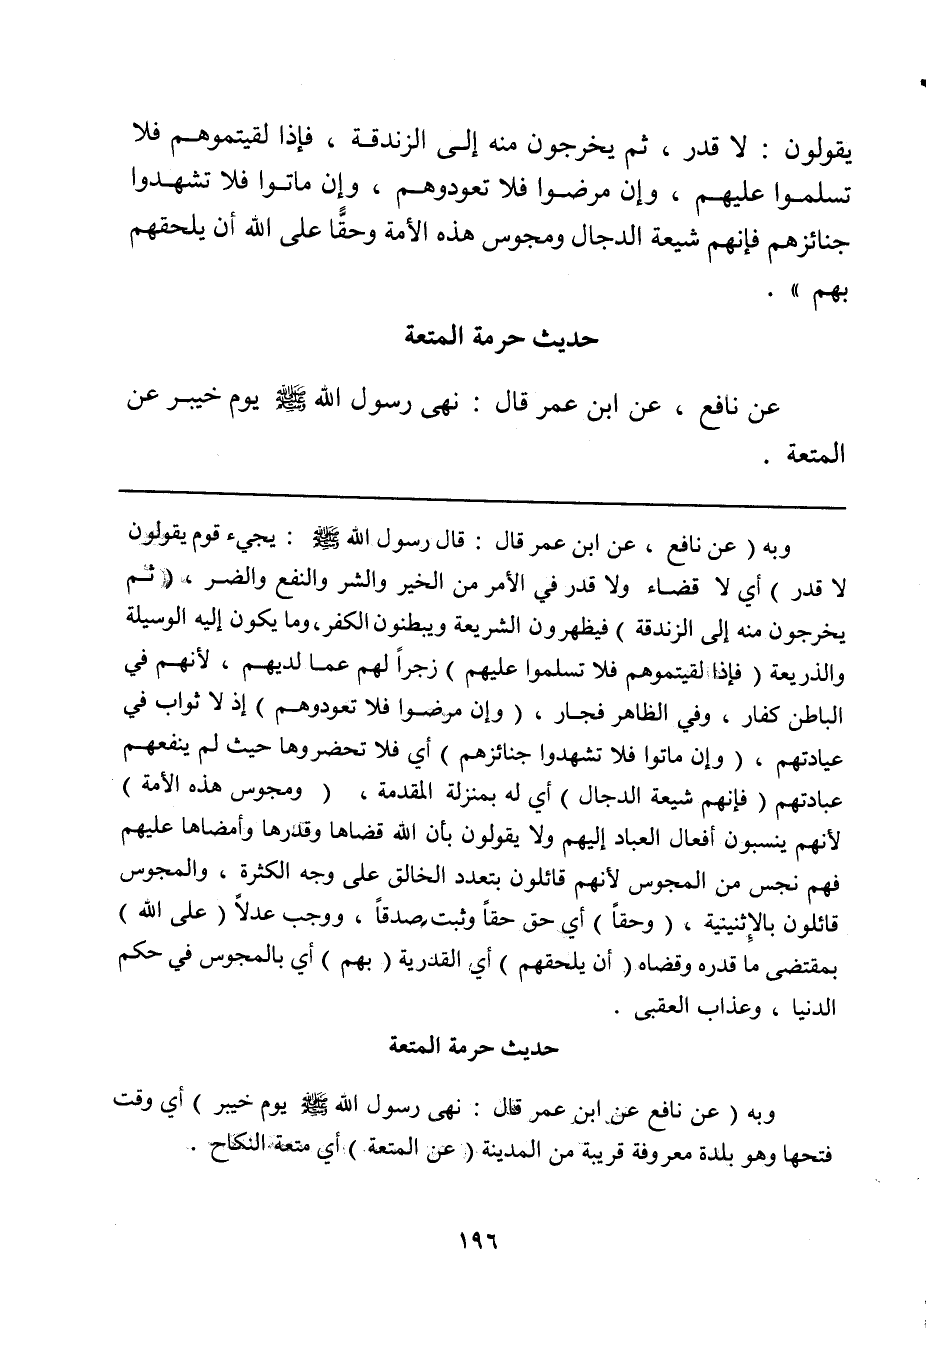 يقولون : لا قدر ، ثم يخرجون منه إلى الزندقة ، فإذا لقيتموهم فلا
تسلموا عليهم ، وإن مرضوا فلا تعودوهم ، وإن ماتوا فلا تشهدوا
جنائزهم فإنهم شيعة الدجال ومجوس هذه الأمة وحقًّا على الله أن يلحقهم
بهم » .
حديث حرمة المتعة
عن نافع ، عن ابن عمر قال : نهى رسول الله ﷺ يوم خيبر عن
المتعة .
وبه ( عن نافع ، عن ابن عمر قال : قال رسول الله ﷺ : يجيء قوم يقولون
لا قدر ) أي لا قضاء ولا قدر في الأمر من الخير والشر والنفع والضر ، ( ثم
يخرجون منه إلى الزندقة ) فيظهرون الشريعة ويبطنون الكفر ، وما يكون إليه الوسيلة
والذريعة ( فإذا لقيتموهم فلا تسلموا عليهم ) زجراً لهم عما لديهم ، لأنهم في
الباطن كفار ، وفي الظاهر فجار ، ( وإن مرضوا فلا تعودوهم ) إذ لا ثواب في
عيادتهم ، ( وإن ماتوا فلا تشهدوا جنائزهم ) أي فلا تحضروها حيث لم ينفعهم
عبادتهم ( فإنهم شيعة الدجال ) أي له بمنزلة المقدمة ، ( ومجوس هذه الأمة )
لأنهم ينسبون أفعال العباد إليهم ولا يقولون بأن الله قضاها وقدرها وأمضاها عليهم
فهم نجس من المجوس لأنهم قائلون بتعدد الخالق على وجه الكثرة ، والمجوس
قائلون بالإثنينية ، ( وحقاً ) أي حق حقاً وثبت صدقاً ، ووجب عدلاً ( على الله )
بمقتضى ما قدره وقضاه ( أن يلحقهم ) أي القدرية ( بهم ) أي بالمجوس في حكم
الدنيا ، وعذاب العقبى .
حديث حرمة المتعة
وبه ( عن نافع عن ابن عمر قال : نهى رسول الله ﷺ يوم خيبر ) أي وقت
فتحها وهو بلدة معروفة قريبة من المدينة ( عن المتعة ) أي متعة النكاح .
١٩٦